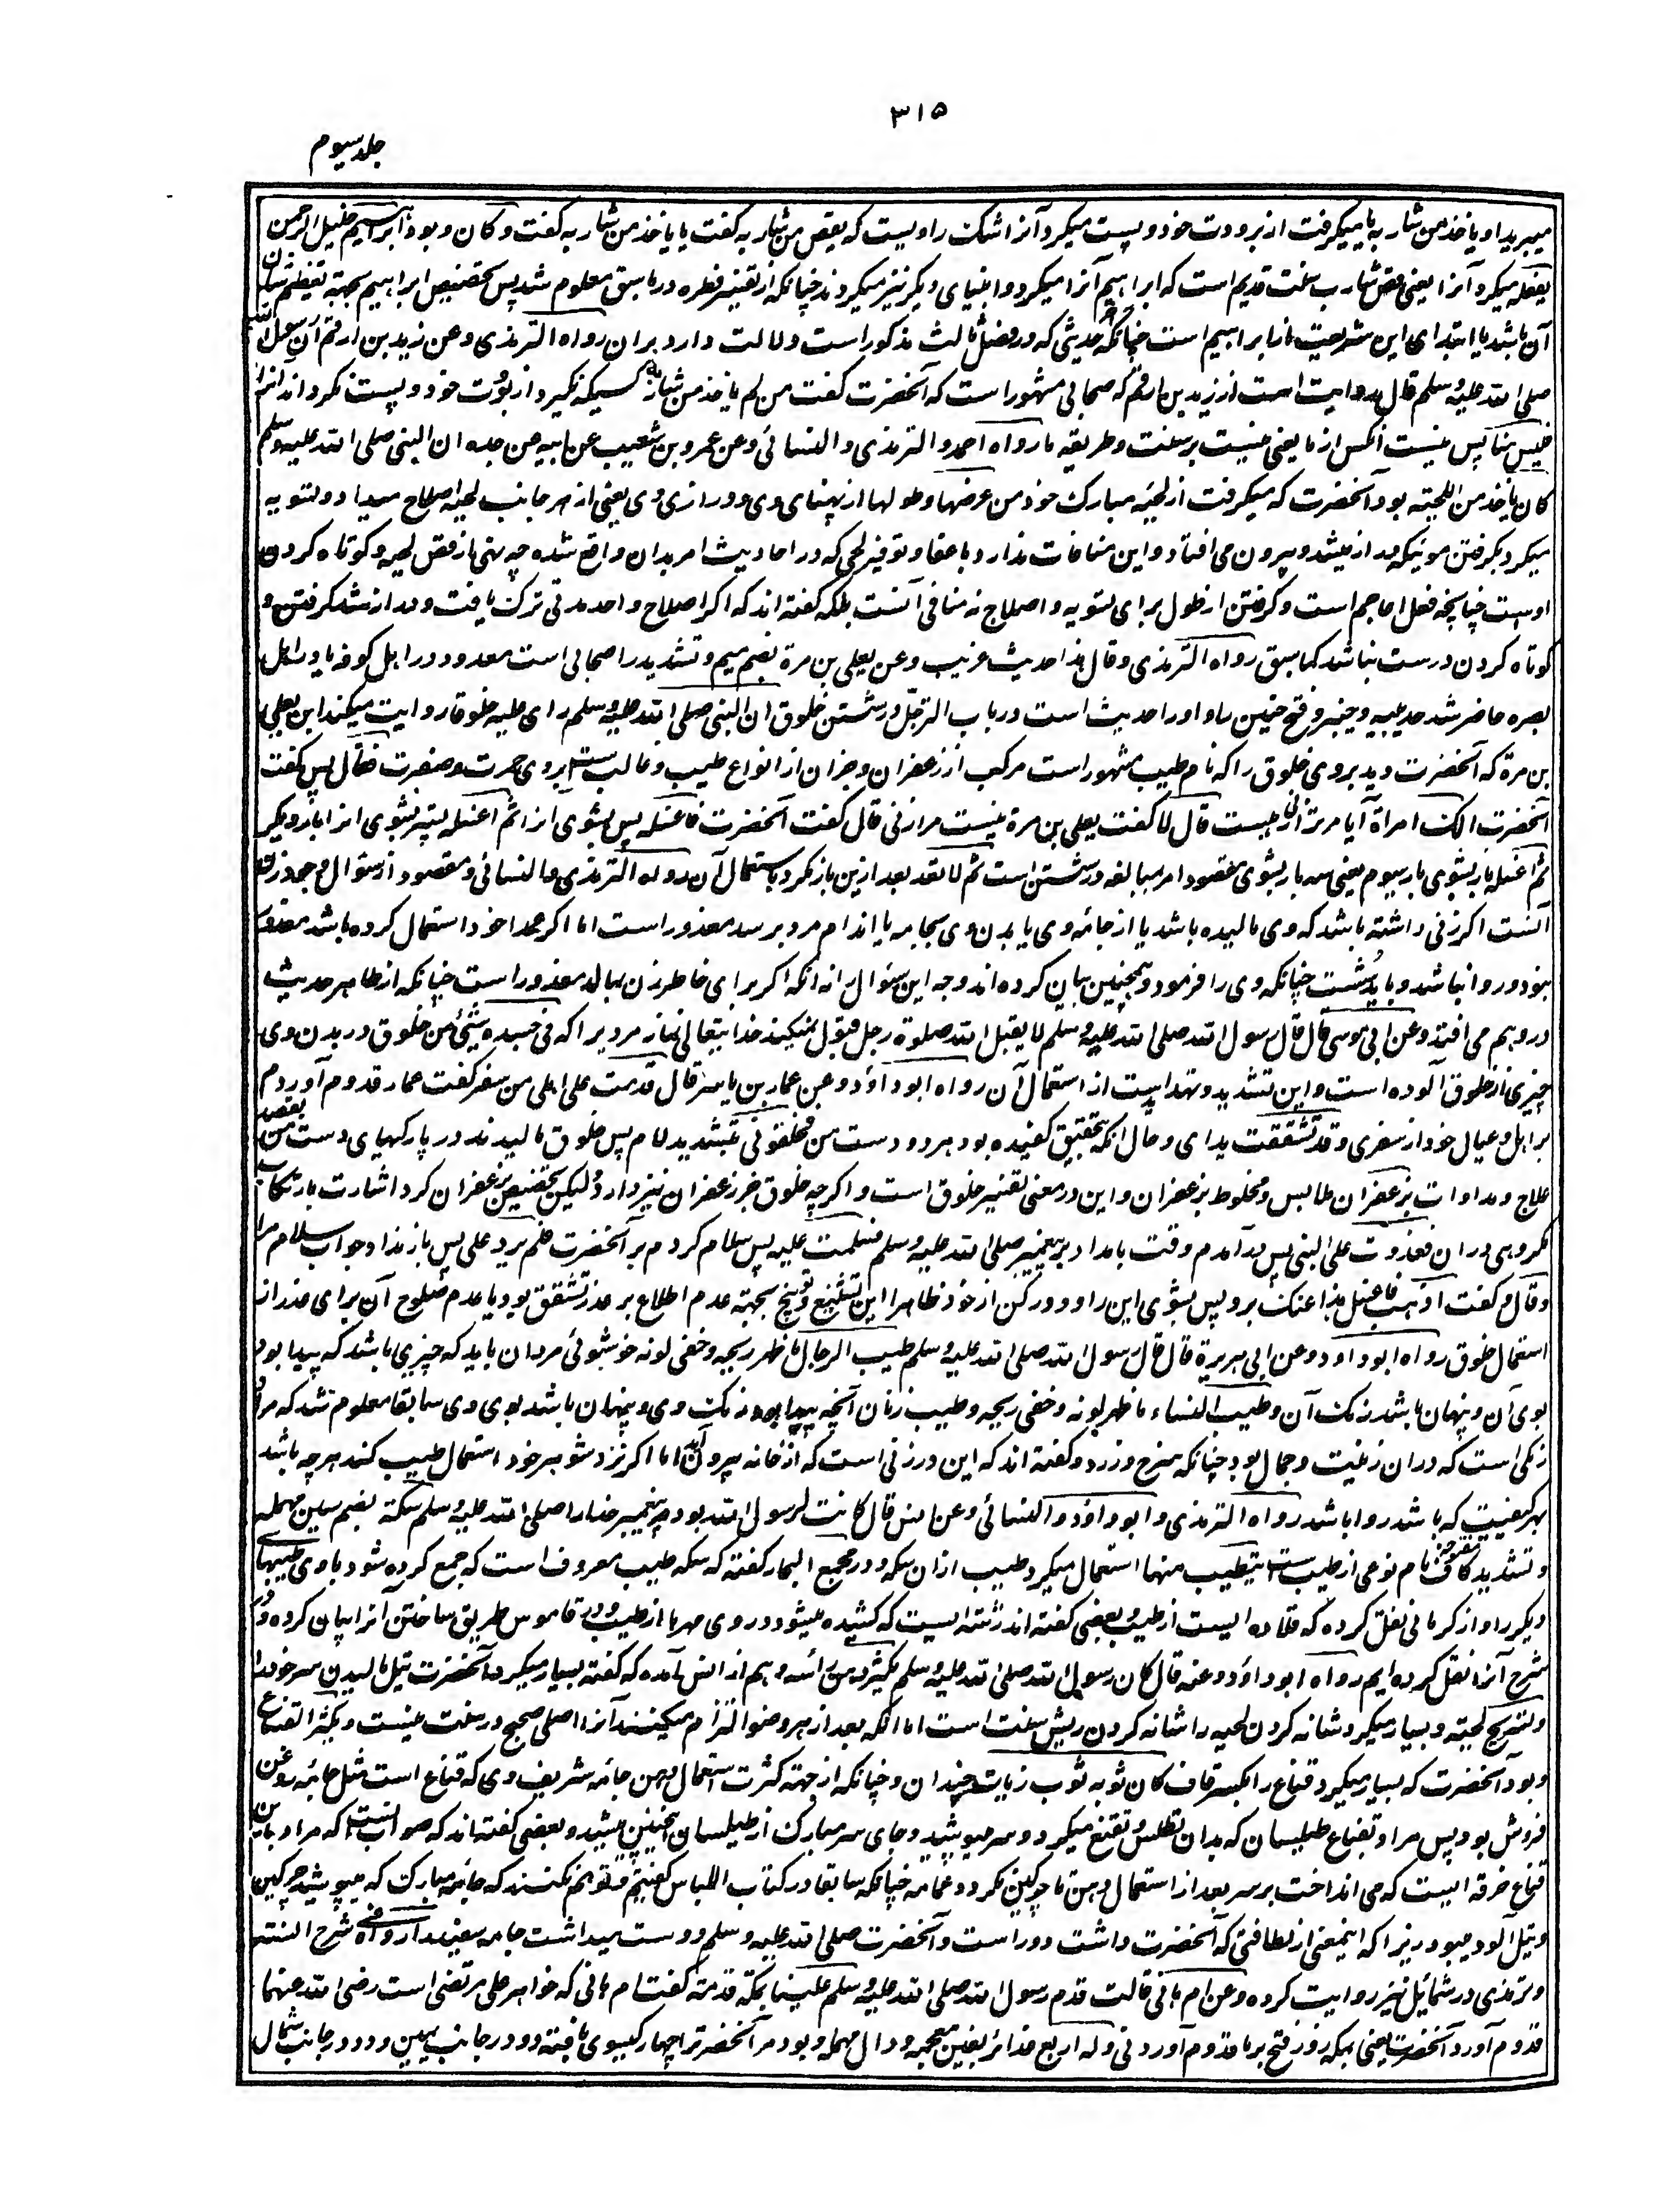 ۳۱۵
جلد سیوم
میبرید او یاخذ من شاربه یا میگرفت از برودت خود و پست میکرد آنرا شک راویست که یقص من شاربه گفت یا یاخذ من شاربه گفت و کان و بود ابراهیم خلیل الرحمن
یفعله میکرد آنرا یعنی قص شارب سنت قدیم است که ابراهیم آنرا میکرد و انبیای دیگر نیز میکردند چنانکه از تفسیر فطره در ما سبق معلوم شد پس تخصیص ابراهیم بجهة تعظیم شان
آن باشد یا ابتدای این شریعت از ابراهیم است چنانکه حدیثی که در فصل ثالث مذکور است دلالت دارد بران رواه الترمذی وعن زید بن ارقم ان رسول الله
صلی الله علیه وسلم قال روایت است از زید بن ارقم که صحابی مشهور است که آنحضرت گفت من لم یاخذ من شاربه کسیکه نگیرد از بروت خود و پست نکرداند آنرا
فلیس منا پس نیست آنکس از ما یعنی نیست بر سنت و طریقه ما رواه احمد والترمذی والنسائی وعن عمرو بن شعیب عن ابیه عن جده ان النبی صلی الله علیه وسلم
کان یاخذ من اللحیته بود آنحضرت که میگرفت از لحیهٔ مبارک خود من عرضها و طولها از پهنای وی و درازی وی یعنی از هر جانب لحیه اصلاح میداد و تسویه
میکرد بگرفتن مویکه دراز میشد و بیرون می افتاد و این منافات ندارد باعفا و توفیر لحی که در احادیث امر بدان واقع شده چه نهی از قص لحیه و کوتاه کردن
اوست چنانچه فعل اعاجم است و گرفتن از طول برای تسویه و اصلاح نه منافی آنست بلکه گفته اند که اگر اصلاح واحد مدتی ترک یافت و دراز شد گرفتن و
کوتاه کردن درست نباشد کما سبق رواه الترمذی وقال هذا حدیث غریب وعن یعلی بن مرة بضم میم و تشدید را صحابی است معدود در اهل کوفه یا در اهل
بصره حاضر شد حدیبیه و خیبر و فتح حنین را و او را حدیث است در باب الترجل در شستن خلوق ان النبی صلی الله علیه وسلم رای علیه خلوقا روایت میکند ابن یعلی
بن مرة که آنحضرت دید بر وی خلوق را که نام طیب مشهور است مرکب از زعفران و جز آن از انواع طیب و غالب ست بر وی حمرت و صفرت فقال پس گفت
آنحضرت الک امراة آیا مر ترا زنی هست قال لا گفت یعلی بن مرة نیست مرا زنی قال گفت آنحضرت فاغسله پس بشوی آنرا ثم اغسله پستر بشوی آنرا بار دیگر
ثم اغسله باز بشوی بار سیوم یعنی سه بار بشوی مقصود امر بمبالغه در شستن است ثم لا تعد بعد ازین باز نگرد باستعمال آن رواه الترمذی والنسائی و مقصود از سؤال وجود زن
آنست اگر زنی داشته باشد که وی مالیده باشد یا از جامهٔ وی یا بدن وی بجامه یا اندام مرد برسد معذور است اما اگر عمدا خود استعمال کرده باشد معذور
نبود و روا نباشد و باید شست چنانکه وی را فرمود و همچنین بیان کرده اند وجه این سؤال را نه آنکه اگر برای خاطر زن بمالد معذور است چنانکه از ظاهر حدیث
در وهم می افتد وعن ابی موسی قال قال رسول الله صلی الله علیه وسلم لا یقبل الله صلوة رجل قبول نمیکند خدا یتعالی نماز مردیرا که فی جسده شئ من خلوق در بدن وی
چیزی از خلوق آلوده است و این تشدید و تهدید است از استعمال آن رواه ابو داؤد وعن عمار بن یاسر قال قدمت علی اهلی من سفر گفت عمار قدوم آوردم
بر اهل و عیال خود از سفری وقد تشققت یدای و حال آنکه بتحقیق کفیده بود هر دو دست من فخلقونی بتشدید لام پس خلوق مالیدند در پارکیهای دست من بقصد
علاج و مداوات بزعفران ملابس و مخلوط بزعفران و این در معنی تفسیر خلوق است و اگرچه خلوق جز زعفران نیز دارد لیکن تخصیص بزعفران کرد اشارت بارتکاب
مکروهی دران فغدوت علی النبی پس درآمدم وقت بامداد بر پیغمبر صلی الله علیه وسلم فسلمت علیه پس سلام کردم بر آنحضرت فلم یرد علی پس باز نداد جواب سلام مرا
وقال و گفت اذهب فاغسل هذا عنک برو پس بشوی این را و دور کن از خود ظاهرا این تشنیع و توبیخ بجهة عدم اطلاع بر عذر تشقق بود یا عدم صلوح آن برای عذر از
استعمال خلوق رواه ابو داود وعن ابی هریرة قال قال رسول الله صلی الله علیه وسلم طیب الرجال ما ظهر ریحه وخفی لونه خوشبوئی مردان باید که چیزی باشد که پیدا بود
بوی آن و پنهان باشد رنگ آن وطیب النساء ما ظهر لونه وخفی ریحه و طیب زنان آنچه پیدا بود رنگ وی و پنهان باشد بوی وی سابقا معلوم شد که مراد
رنگی است که دران زینت و جمال بود چنانکه سرخ و زرد و گفته اند که این در زنی است که از خانه بیرون آید اما اگر نزد شوهر خود استعمال طیب کند هرچه باشد
بهر کیفیت که باشد روا باشد رواه الترمذی وابو داؤد والنسائی وعن انس قال کانت لرسول الله بود مر پیغمبر خدا را صلی الله علیه وسلم سکة بضم سین مهمله
و تشدید کاف مفتوحه نام نوعی از طیب ست یتطیب منها استعمال میکرد طیب ازان سکه و در مجمع البحار گفته که سکه طیب معروف است که جمع کرده شود باوی طیبهای
دیگر را و از کرمانی نقل کرده که قلاده ایست از طیب و بعضی گفته اند رشته ایست که کشیده میشود در وی مهرها از طیب و در قاموس طریق ساختن آنرا بیان کرده و در
شرح آنرا نقل کرده ایم رواه ابو داؤد وعنه قال کان رسول الله صلی الله علیه وسلم یکثر دهن رأسه و هم از انس آمده که گفته بسیار میکرد آنحضرت تیل مالیدن سر خود را
وتسریح لحیته و بسیار میکرد شانه کردن لحیه را شانه کردن ریش سنت است اما آنکه بعد از هر وضو التزام میکنند آنرا اصلی صحیح در سنت نیست ویکثر القناع
و بود آنحضرت که بسیار میکرد قناع را بکسر قاف کان ثوبه ثوب زیات چندان و چنانکه از جهة کثرت استعمال دهن جامهٔ شریف وی که قناع است مثل جامهٔ روغن
فروش بود پس مراد بقناع طیلسان که بدان تطلس و تقنع میکرد و سر میپوشید و جای سر مبارک از طیلسان اینچنین میشد و بعضی گفته اند که صواب آنست که مراد باین
قناع خرقه ایست که می انداخت بر سر بعد از استعمال دهن تا چرکین نگردد عمامه چنانکه سابقا در کتاب اللباس گفتیم و توهم نکنند که جامهٔ مبارک که میپوشید چرکین
و تیل آلود میبود زیرا که اینمعنی از نظافتی که آنحضرت داشت دور است و آنحضرت صلی الله علیه وسلم دوست میداشت جامه سفید را رواه فی شرح السنته
و ترمذی در شمائل نیز روایت کرده وعن ام هانی قالت قدم رسول الله صلی الله علیه وسلم علینا بمکة قدمة گفت ام هانی که خواهر علی مرتضی است رضی الله عنهما
قدوم آورد آنحضرت یعنی بمکه روز فتح بر ما قدوم آوردنی وله اربع غدائر بفتح غین معجمه و دال مهمله و بود مر آنحضرت را چهار گیسوی بافته دو در جانب یمین و دو در جانب شمال